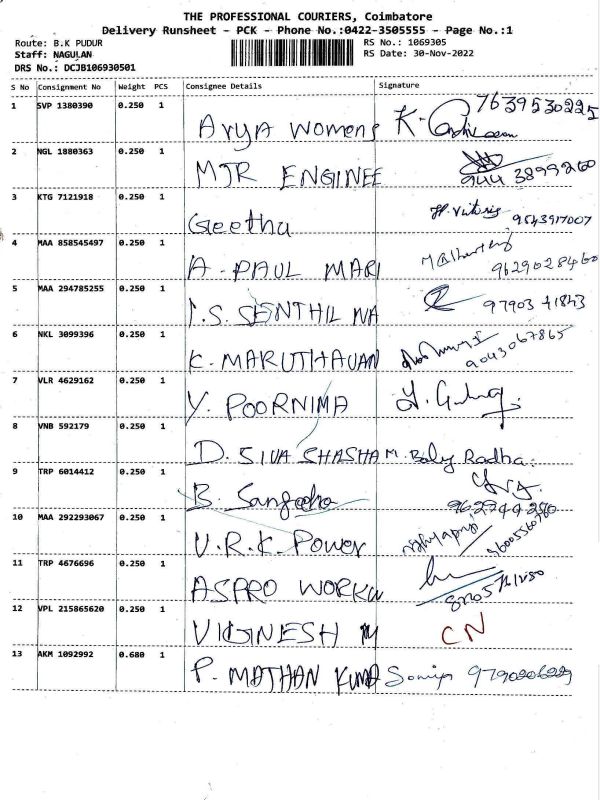 THE PROFESSIONAL COURIERS, Coimbatore
Delivery Runsheet - PCK - Phone No.:0422-3505555 - Page No.:1
Route: B.K PUDUR RS No.: 1069305
Staff: NAGULAN RS Date: 30-Nov-2022
DRS No.: DCJB106930501
S No Consignment No Weight PCS Consignee Details Signature
1 SVP 1380390 0.250 1 Arya Womens K. 7639530225
2 NGL 1880363 0.250 1 MJR ENGINEE 944 3899260
3 KTG 7121918 0.250 1 Geetha 9543917007
4 MAA 858545497 0.250 1 A. PAUL MARI 9629028460
5 MAA 294785255 0.250 1 I.S. SENTHIL NA 97903 41843
6 NKL 3099396 0.250 1 K. MARUTHAVAN 9043067865
7 VLR 4629162 0.250 1 Y. POORNIMA
8 VNB 592179 0.250 1 D. SIVA SHASHA M. Baby Radha.
9 TRP 6014412 0.250 1 B. Sangeetha
10 MAA 292293067 0.250 1 U.R.K. Power 9600556078
11 TRP 4676696 0.250 1 ASPRO WORKW
12 VPL 215865620 0.250 1 VIGINESH M CN
13 AKM 1092992 0.680 1 P. MATHAN KUMA